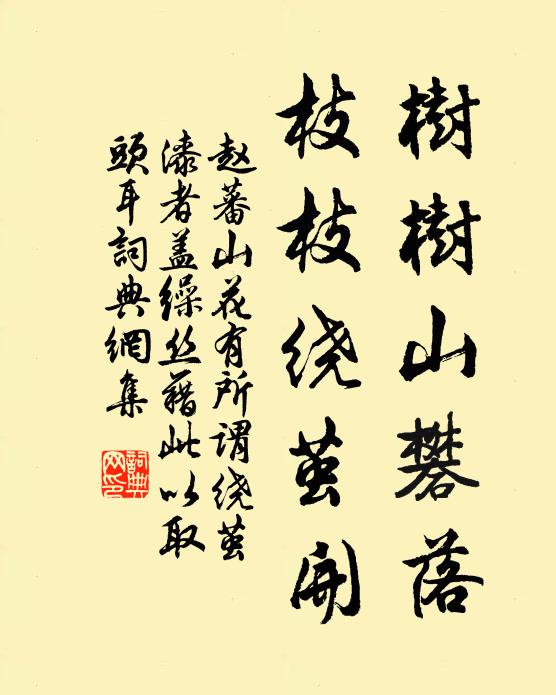 樹樹山礬落
枝枝绕茧開
赵蕃山花有所謂绕茧
漆者盖缲丝藉此以取
頭耳詞典網集
詞典网印